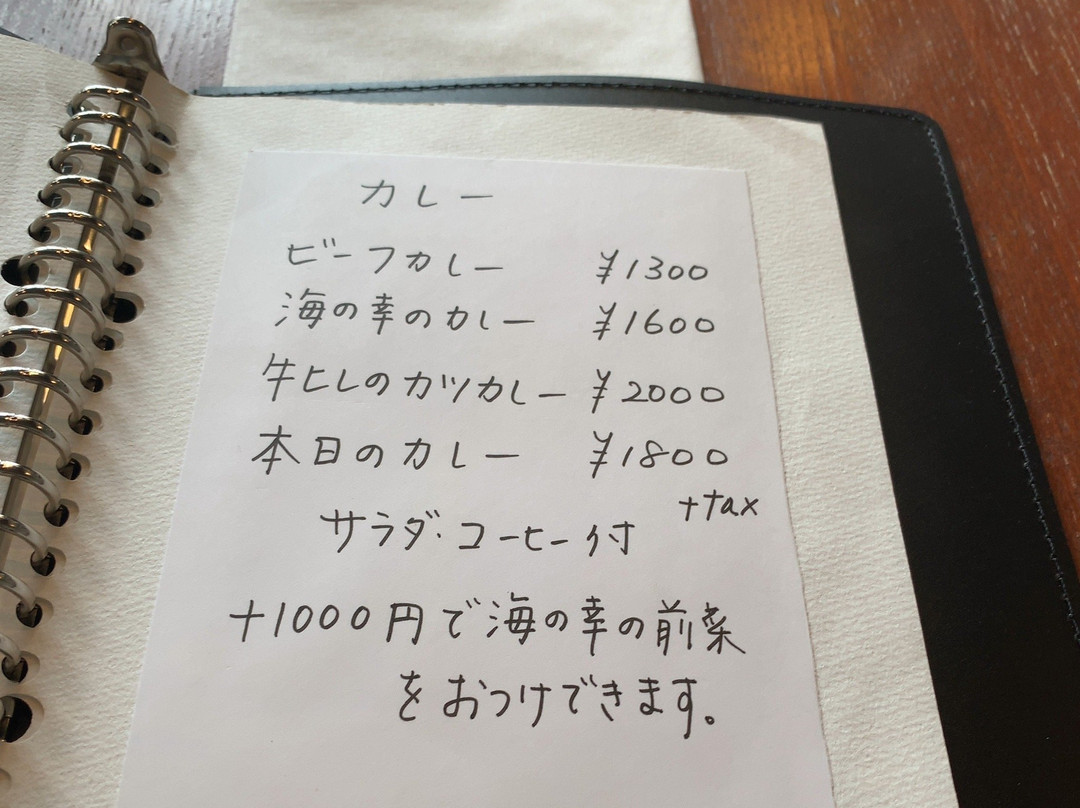 カレー
ビーフカレー ¥1300
海の幸のカレー ¥1600
牛ヒレのカツカレー ¥2000
本日のカレー ¥1800
+tax
サラダ・コーヒー付
+1000円で海の幸の前菜
をおつけできます。